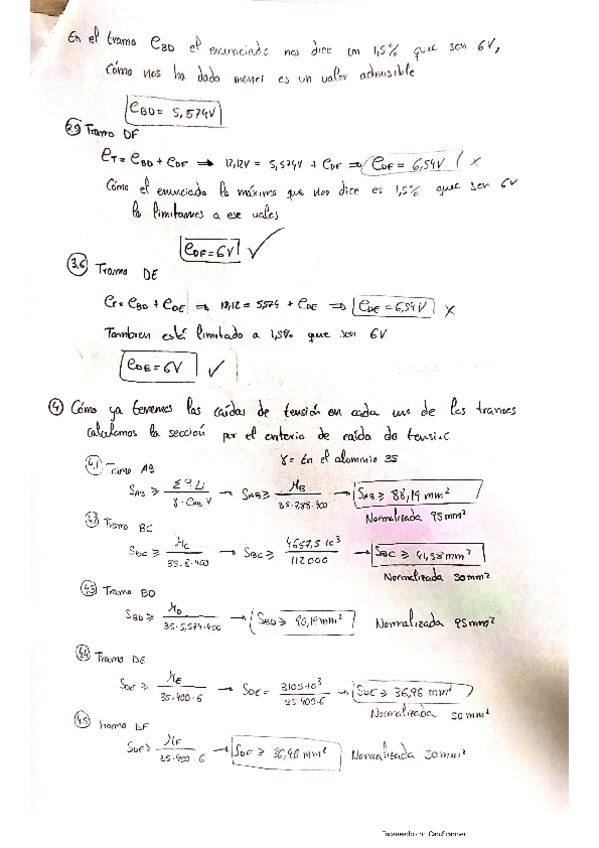 En el tramo e_BD el enunciado nos dice un 1,5% que son 6V,
Cómo nos ha dado menos es un valor admisible
e_BD = 5,574V
Tramo DF
e_T = e_BD + e_DF ⇒ 12,12V = 5,574V + e_DF ⇒ e_DF = 6,54V X
Cómo el enunciado lo máximo que nos dice es 1,5% que son 6V
lo limitamos a ese valor
e_DF = 6V ✓
3,6 Tramo DE
e_T = e_BD + e_DE ⇒ 12,12 = 5,574 + e_DE ⇒ e_DE = 6,54V X
Tambien está limitado a 1,5% que son 6V
e_DE = 6V ✓
4 Cómo ya tenemos las caídas de tensión en cada uno de los tramos
calculamos la sección por el criterio de caída de
γ = En el aluminio 35
4,1 Tramo AB
S_AB ≥ Σ P·Li / γ · e_AB · V → S_AB ≥ M_B / 35·7,88·400 → S_AB ≥ 88,19 mm²
Normalizada 95 mm²
Tramo BC
S_BC ≥ M_C / 35·8·400 → S_BC ≥ 4657,5·10³ / 112000 → S_BC ≥ 41,58 mm²
Normalizada 50 mm²
4,3 Tramo BD
S_BD ≥ M_D / 35·5,574·400 → S_BD ≥ 90,19 mm² Normalizada 95 mm²
4,4 Tramo DE
S_DE ≥ M_E / 35·400·6 → S_DE = 3105·10³ / 35·400·6 → S_DE ≥ 36,96 mm²
Normalizada 50 mm²
4,5 Tramo DF
S_DF ≥ M_F / 35·400·6 → S_DF ≥ 36,96 mm² Normalizada 50 mm²
Escaneado con CamScanner